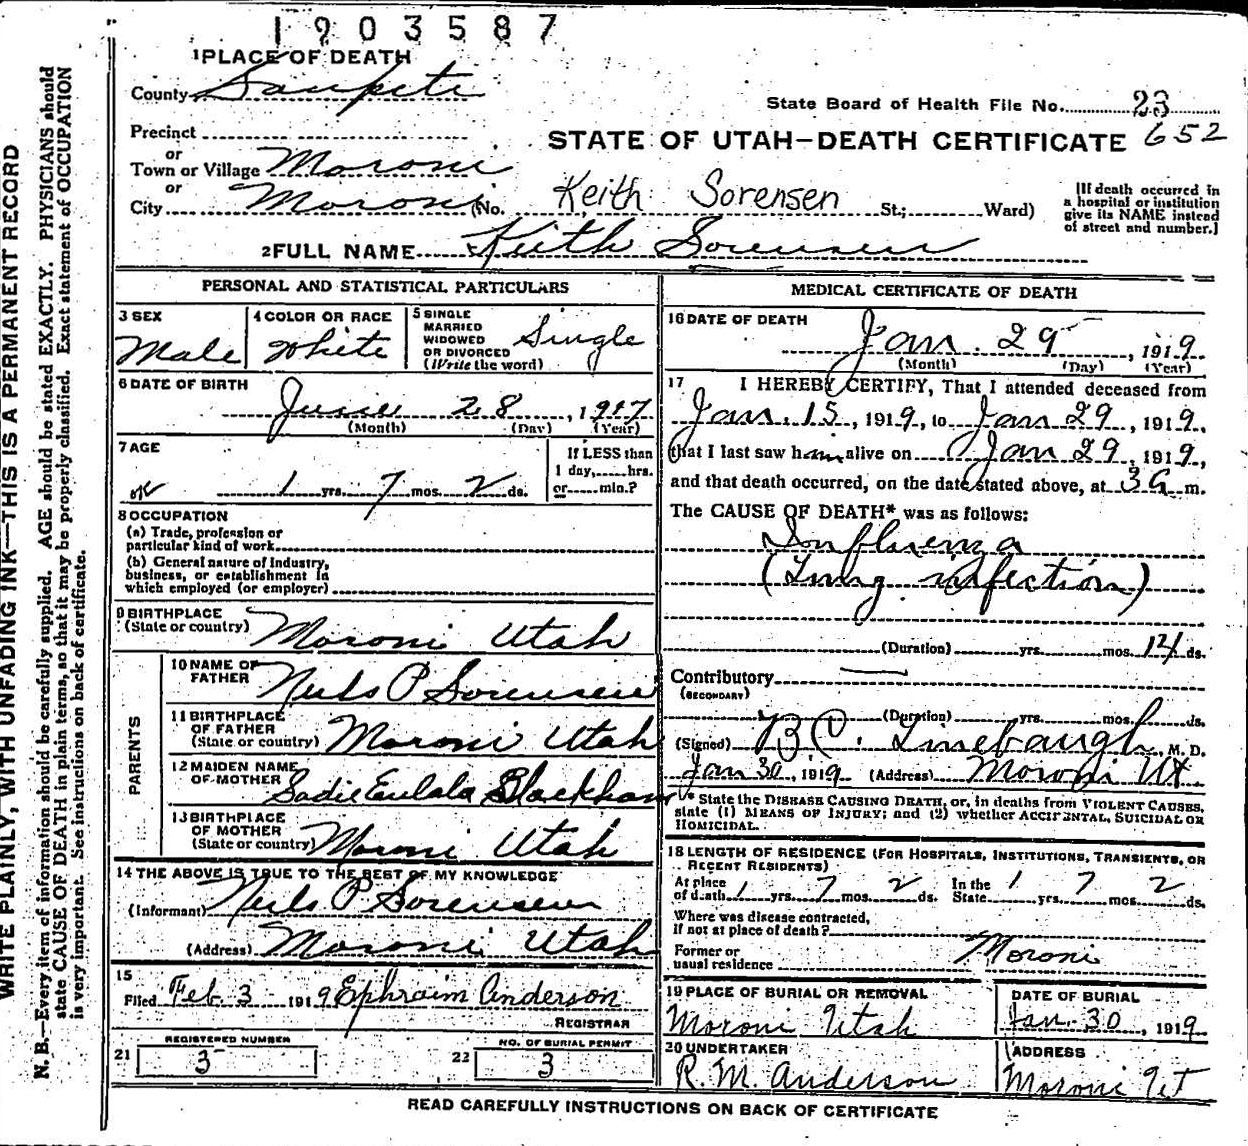 1903587
1 PLACE OF DEATH
County Sanpete
State Board of Health File No. 23
Precinct
652
STATE OF UTAH—DEATH CERTIFICATE
or
Town or Village Moroni
or
City Moroni (No. Keith Sorensen St.; Ward)
[If death occurred in
a hospital or institution
give its NAME instead
of street and number.]
2 FULL NAME Keith Sorensen
PERSONAL AND STATISTICAL PARTICULARS
3 SEX
Male
4 COLOR OR RACE
White
5 SINGLE
MARRIED
WIDOWED
OR DIVORCED
(Write the word)
Single
6 DATE OF BIRTH
June 28, 1917
(Month) (Day) (Year)
7 AGE
OK 1 yrs. 7 mos. 2 ds.
If LESS than
1 day,......hrs.
or......min.?
8 OCCUPATION
(a) Trade, profession or
particular kind of work
(b) General nature of Industry,
business, or establishment in
which employed (or employer)
9 BIRTHPLACE
(State or country) Moroni Utah
PARENTS
10 NAME OF
FATHER Neils P Sorensen
11 BIRTHPLACE
OF FATHER
(State or country) Moroni Utah
12 MAIDEN NAME
OF MOTHER Sadie Eulala Blackham
13 BIRTHPLACE
OF MOTHER
(State or country) Moroni Utah
14 THE ABOVE IS TRUE TO THE BEST OF MY KNOWLEDGE
(Informant) Neils P Sorensen
(Address) Moroni Utah
15
Filed Feb 3 1919 Ephraim Anderson
REGISTRAR
21 REGISTERED NUMBER
3
22 NO. OF BURIAL PERMIT
3
MEDICAL CERTIFICATE OF DEATH
16 DATE OF DEATH
Jan. 29, 1919
(Month) (Day) (Year)
17 I HEREBY CERTIFY, That I attended deceased from
Jan. 15, 1919, to Jan 29, 1919,
that I last saw him alive on Jan 29, 1919,
and that death occurred, on the date stated above, at 3 a m.
The CAUSE OF DEATH* was as follows:
Influenza
(Lung infection)
(Duration) yrs. mos. 14 ds.
Contributory
(SECONDARY)
(Duration) yrs. mos. ds.
(Signed) B C. Linebaugh, M. D.
Jan 30, 1919 (Address) Moroni Ut
* State the DISEASE CAUSING DEATH, or, in deaths from VIOLENT CAUSES,
state (1) MEANS OF INJURY; and (2) whether ACCIDENTAL, SUICIDAL OR
HOMICIDAL.
18 LENGTH OF RESIDENCE (FOR HOSPITALS, INSTITUTIONS, TRANSIENTS, OR
RECENT RESIDENTS)
At place
of death 1 yrs. 7 mos. 2 ds.
In the
State 1 yrs. 7 mos. 2 ds.
Where was disease contracted,
if not at place of death?
Former or
usual residence Moroni
19 PLACE OF BURIAL OR REMOVAL
Moroni Utah
DATE OF BURIAL
Jan. 30, 1919
20 UNDERTAKER
R. M. Anderson
ADDRESS
Moroni Ut
READ CAREFULLY INSTRUCTIONS ON BACK OF CERTIFICATE
WRITE PLAINLY, WITH UNFADING INK—THIS IS A PERMANENT RECORD
N. B.—Every item of information should be carefully supplied. AGE should be stated EXACTLY. PHYSICIANS should
state CAUSE OF DEATH in plain terms, so that it may be properly classified. Exact statement of OCCUPATION
is very important. See instructions on back of certificate.